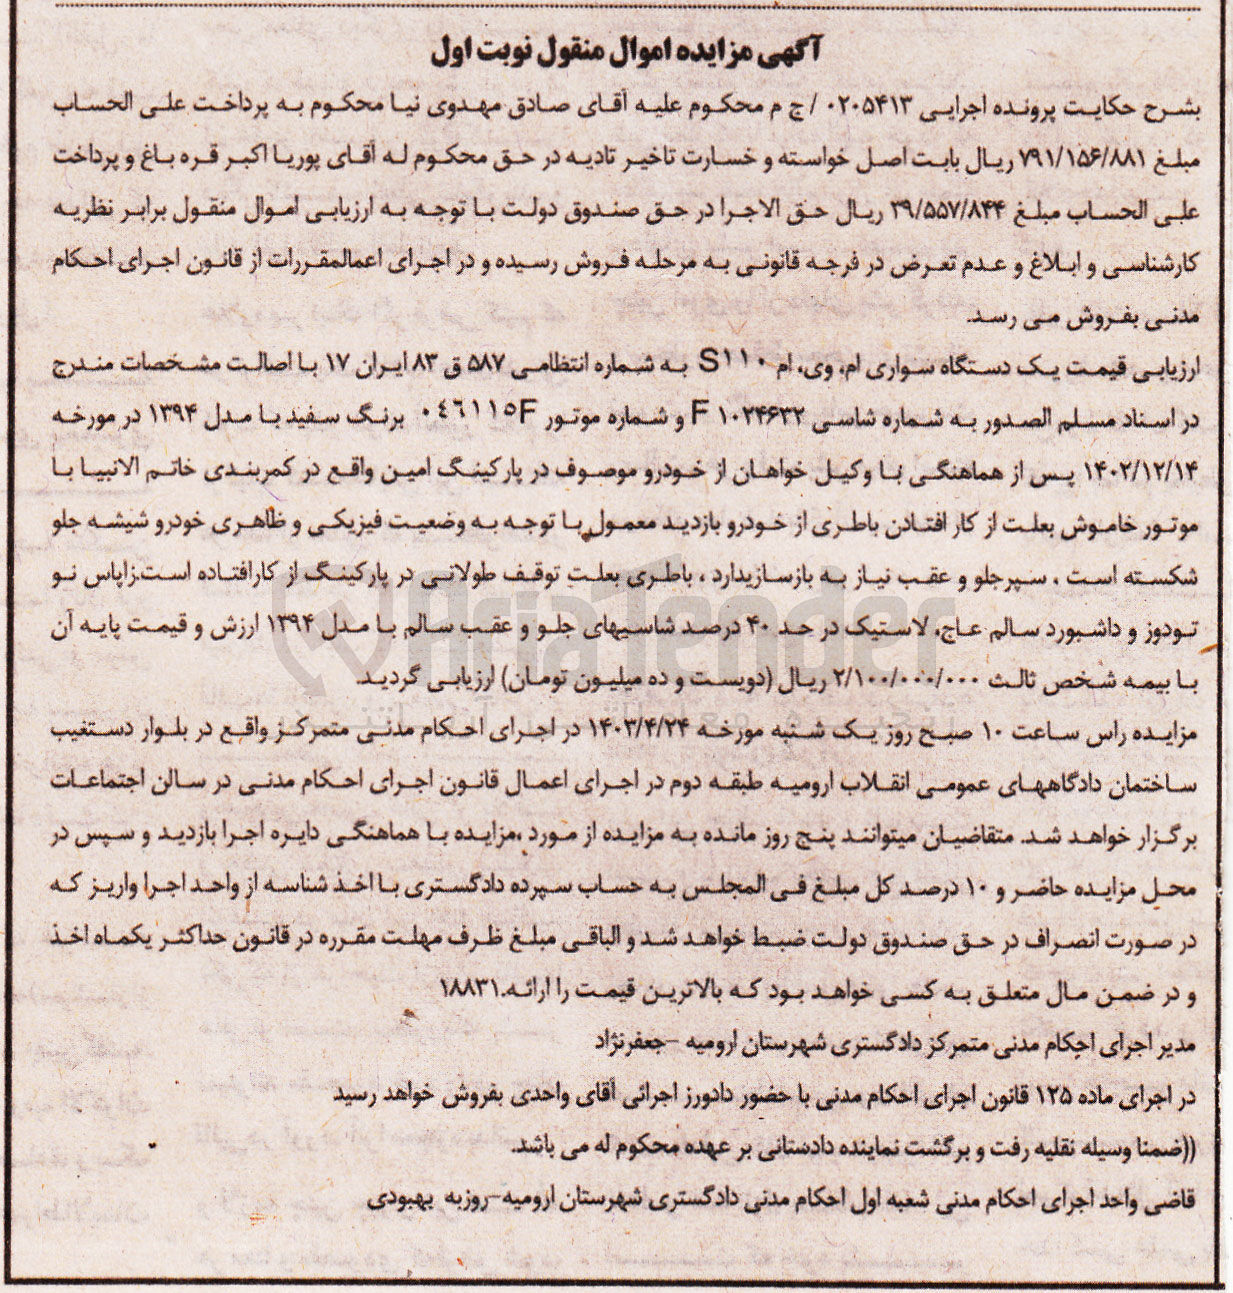 آگهی مزایده اموال منقول نوبت اول
بشرح حکایت پرونده اجرایی ۰۲۰۵۴۱۳ / ج م محکوم علیه آقای صادق مهدوی نیا محکوم به پرداخت علی الحساب
مبلغ ۷۹۱/۱۵۶/۸۸۱ ریال بابت اصل خواسته و خسارت تاخیر تادیه در حق محکوم له آقای پوریا اکبر قره باغ و پرداخت
علی الحساب مبلغ ۳۹/۵۵۷/۸۴۴ ریال حق الاجرا در حق صندوق دولت با توجه به ارزیابی اموال منقول برابر نظریه
کارشناسی و ابلاغ و عدم تعرض در فرجه قانونی به مرحله فروش رسیده و در اجرای اعمالمقررات از قانون اجرای احکام
مدنی بفروش می رسد.
ارزیابی قیمت یک دستگاه سواری ام. وی. ام S۱۱۰ به شماره انتظامی ۵۸۷ ق ۸۳ ایران ۱۷ با اصالت مشخصات مندرج
در اسناد مسلم الصدور به شماره شاسی F ۱۰۲۴۶۳۲ و شماره موتور ٠٤٦١١٥F برنگ سفید با مدل ۱۳۹۴ در مورخه
۱۴۰۲/۱۲/۱۴ پس از هماهنگی با وکیل خواهان از خودرو موصوف در پارکینگ امین واقع در کمربندی خاتم الانبیا با
موتور خاموش بعلت از کار افتادن باطری از خودرو بازدید معمول با توجه به وضعیت فیزیکی و ظاهری خودرو شیشه جلو
شکسته است ، سپرجلو و عقب نیاز به بازسازیدارد ، باطری بعلت توقف طولانی در پارکینگ از کارافتاده است.زاپاس نو
تودوز و داشبورد سالم عاج، لاستیک در حد ۴۰ درصد شاسیهای جلو و عقب سالم با مدل ۱۳۹۴ ارزش و قیمت پایه آن
با بیمه شخص ثالث ۲/۱۰۰/۰۰۰/۰۰۰ ریال (دویست و ده میلیون تومان) ارزیابی گردید.
مزایده راس ساعت ۱۰ صبح روز یک شنبه مورخه ۱۴۰۳/۴/۲۴ در اجرای احکام مدنی متمرکز واقع در بلوار دستغیب
ساختمان دادگاههای عمومی انقلاب ارومیه طبقه دوم در اجرای اعمال قانون اجرای احکام مدنی در سالن اجتماعات
برگزار خواهد شد. متقاضیان میتوانند پنج روز مانده به مزایده از مورد ،مزایده با هماهنگی دایره اجرا بازدید و سپس در
محل مزایده حاضر و ۱۰ درصد کل مبلغ فی المجلس به حساب سپرده دادگستری با اخذ شناسه از واحد اجرا واریز که
در صورت انصراف در حق صندوق دولت ضبط خواهد شد و الباقی مبلغ ظرف مهلت مقرره در قانون حداکثر یکماه اخذ
و در ضمن مال متعلق به کسی خواهد بود که بالاترین قیمت را ارائه.۱۸۸۳۱
مدیر اجرای احکام مدنی متمرکز دادگستری شهرستان ارومیه –جعفرنژاد
در اجرای ماده ۱۲۵ قانون اجرای احکام مدنی با حضور دادورز اجرائی آقای واحدی بفروش خواهد رسید
((ضمنا وسیله نقلیه رفت و برگشت نماینده دادستانی بر عهده محکوم له می باشد.
قاضی واحد اجرای احکام مدنی شعبه اول احکام مدنی دادگستری شهرستان ارومیه–روزبه بهبودی
AriaTender